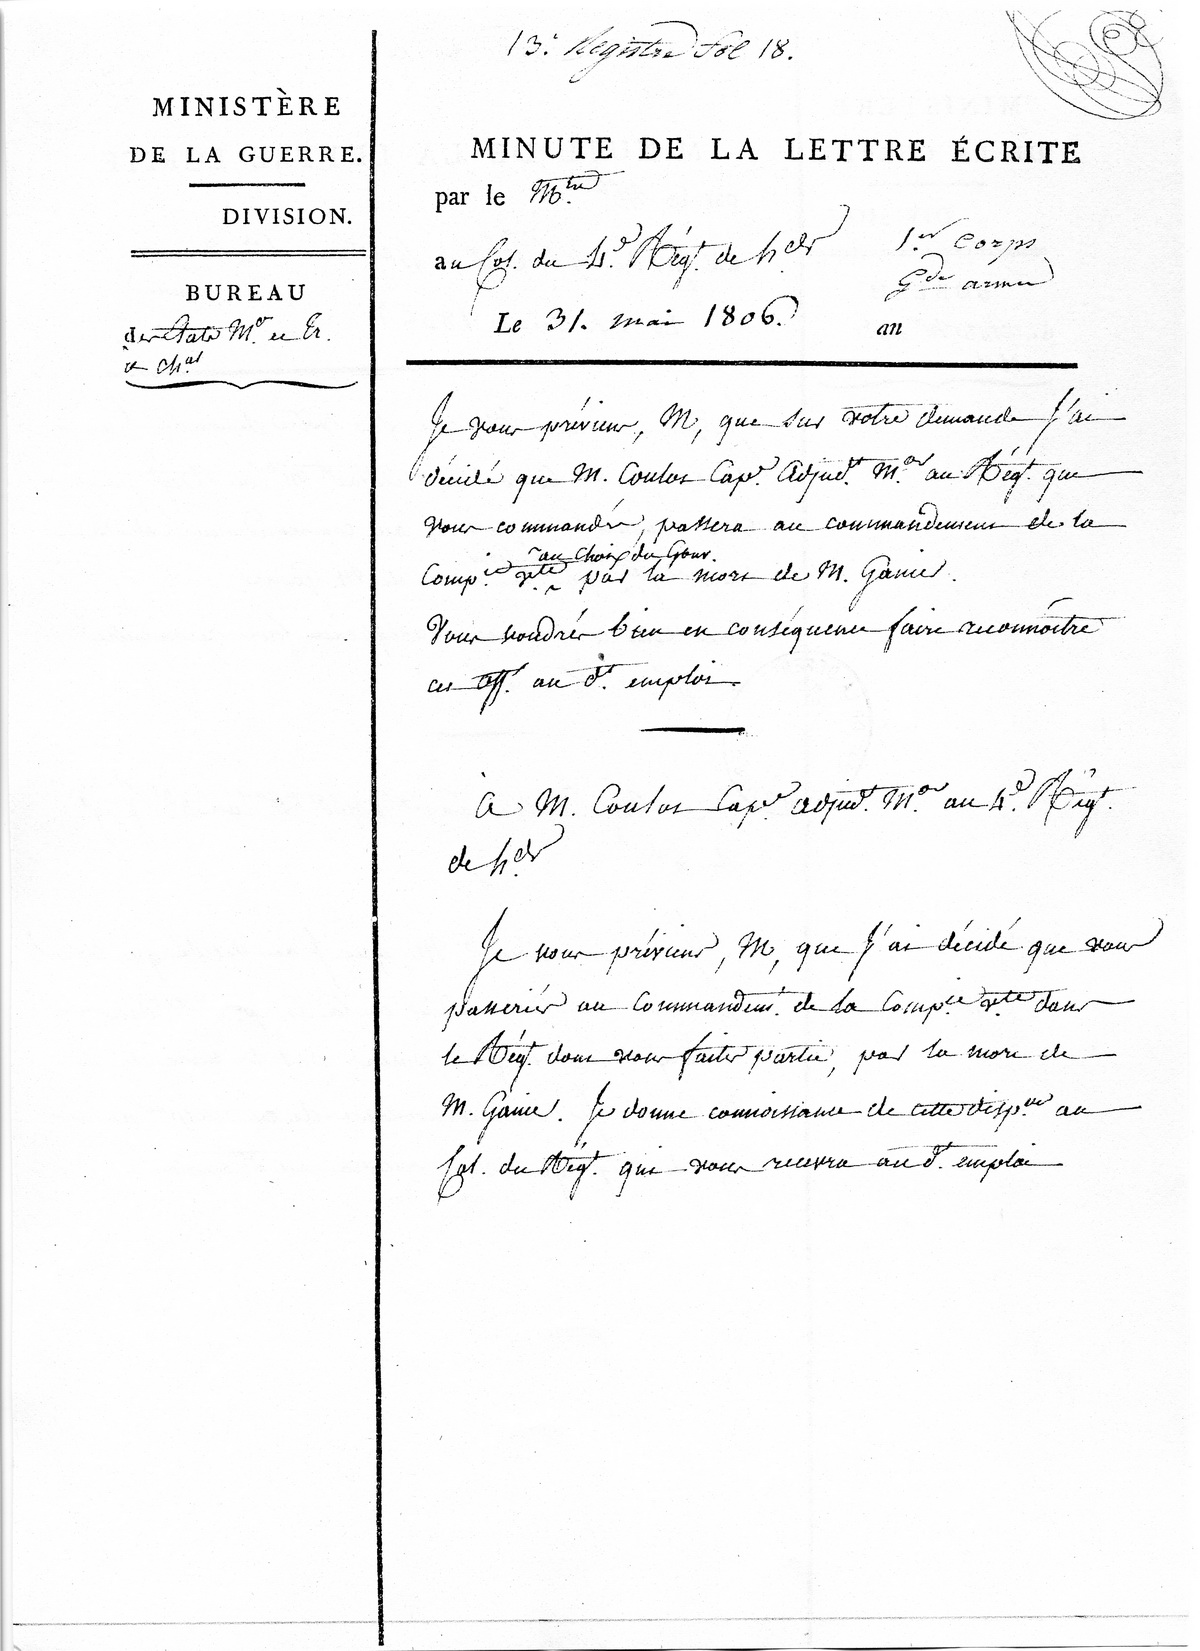 13.e Registre fol 18.
MINISTÈRE
DE LA GUERRE.
DIVISION.
BUREAU
des États M.or
et Ch.as
MINUTE DE LA LETTRE ÉCRITE
par le M.tre
au Col. du 4.e Rég.t de h.ds
1.er Corps
G.de armée
Le 31. mai 1806.
an
Je vous préviens, M, que sur votre demande j'ai
décidé que M. Coulos Cap.e Adjud.t M.or au Rég.t que
vous commandés, passera au commandement de la
au choix du Gouv.
Comp.ie v.te par la mort de M. Ganier.
Vous voudrés bien en conséquence faire reconnoître
cet off. au d.t emploi.
À M. Coulos Cap.e adjud.t M.or au 4.e Rég.t
de h.ds
Je vous préviens, M, que j'ai décidé que vous
passeriés au Commandem.t de la Comp.ie v.te dans
le Rég.t dont vous faites partie, par la mort de
M. Ganier. Je donne connoissance de cette disp.on au
Col. du Rég.t qui vous recevra au d.t emploi